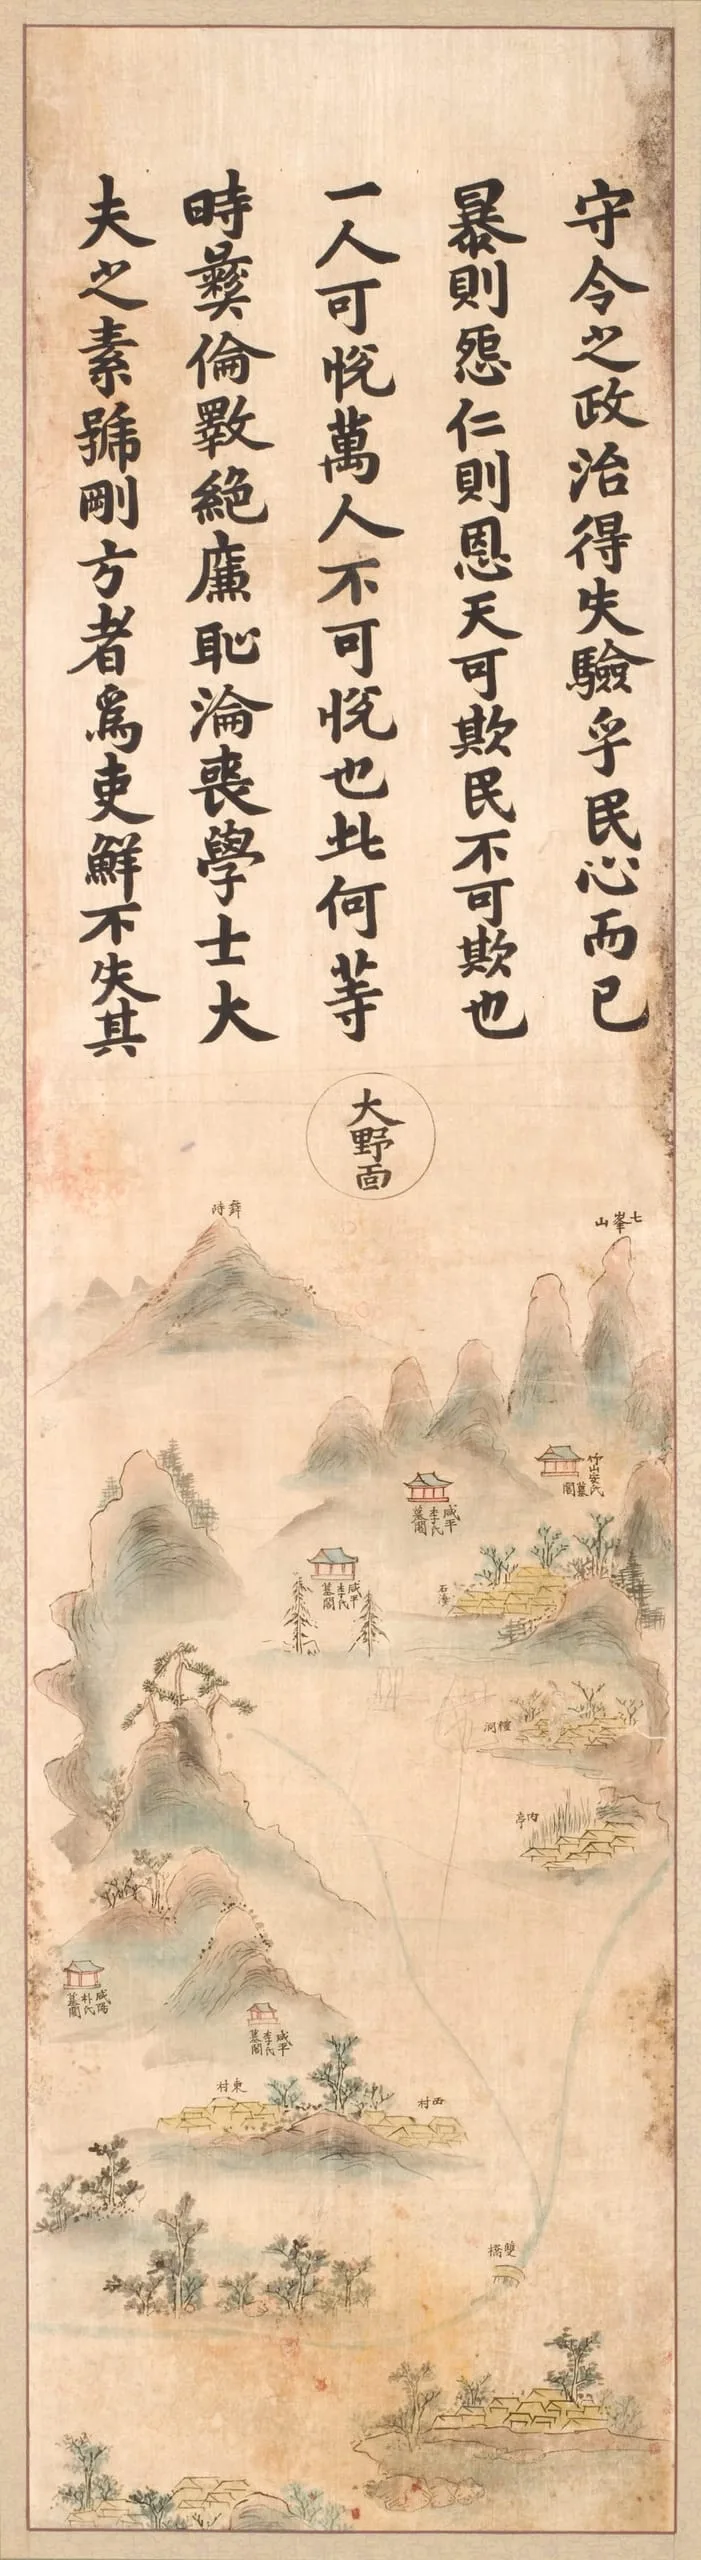 守令之政治得失驗乎民心而已
暴則怨仁則恩天可欺民不可欺也
一人可悅萬人不可悅也此何等
時彝倫斁絕廉恥淪喪學士大
夫之素號剛方者爲吏鮮不失其
大野面
七峯山
舞時
竹山安氏墓閣
咸平李氏墓閣
咸平李氏墓閣
石海
檀洞
內亭
咸陽朴氏墓閣
咸平李氏墓閣
東村
西村
雙橋